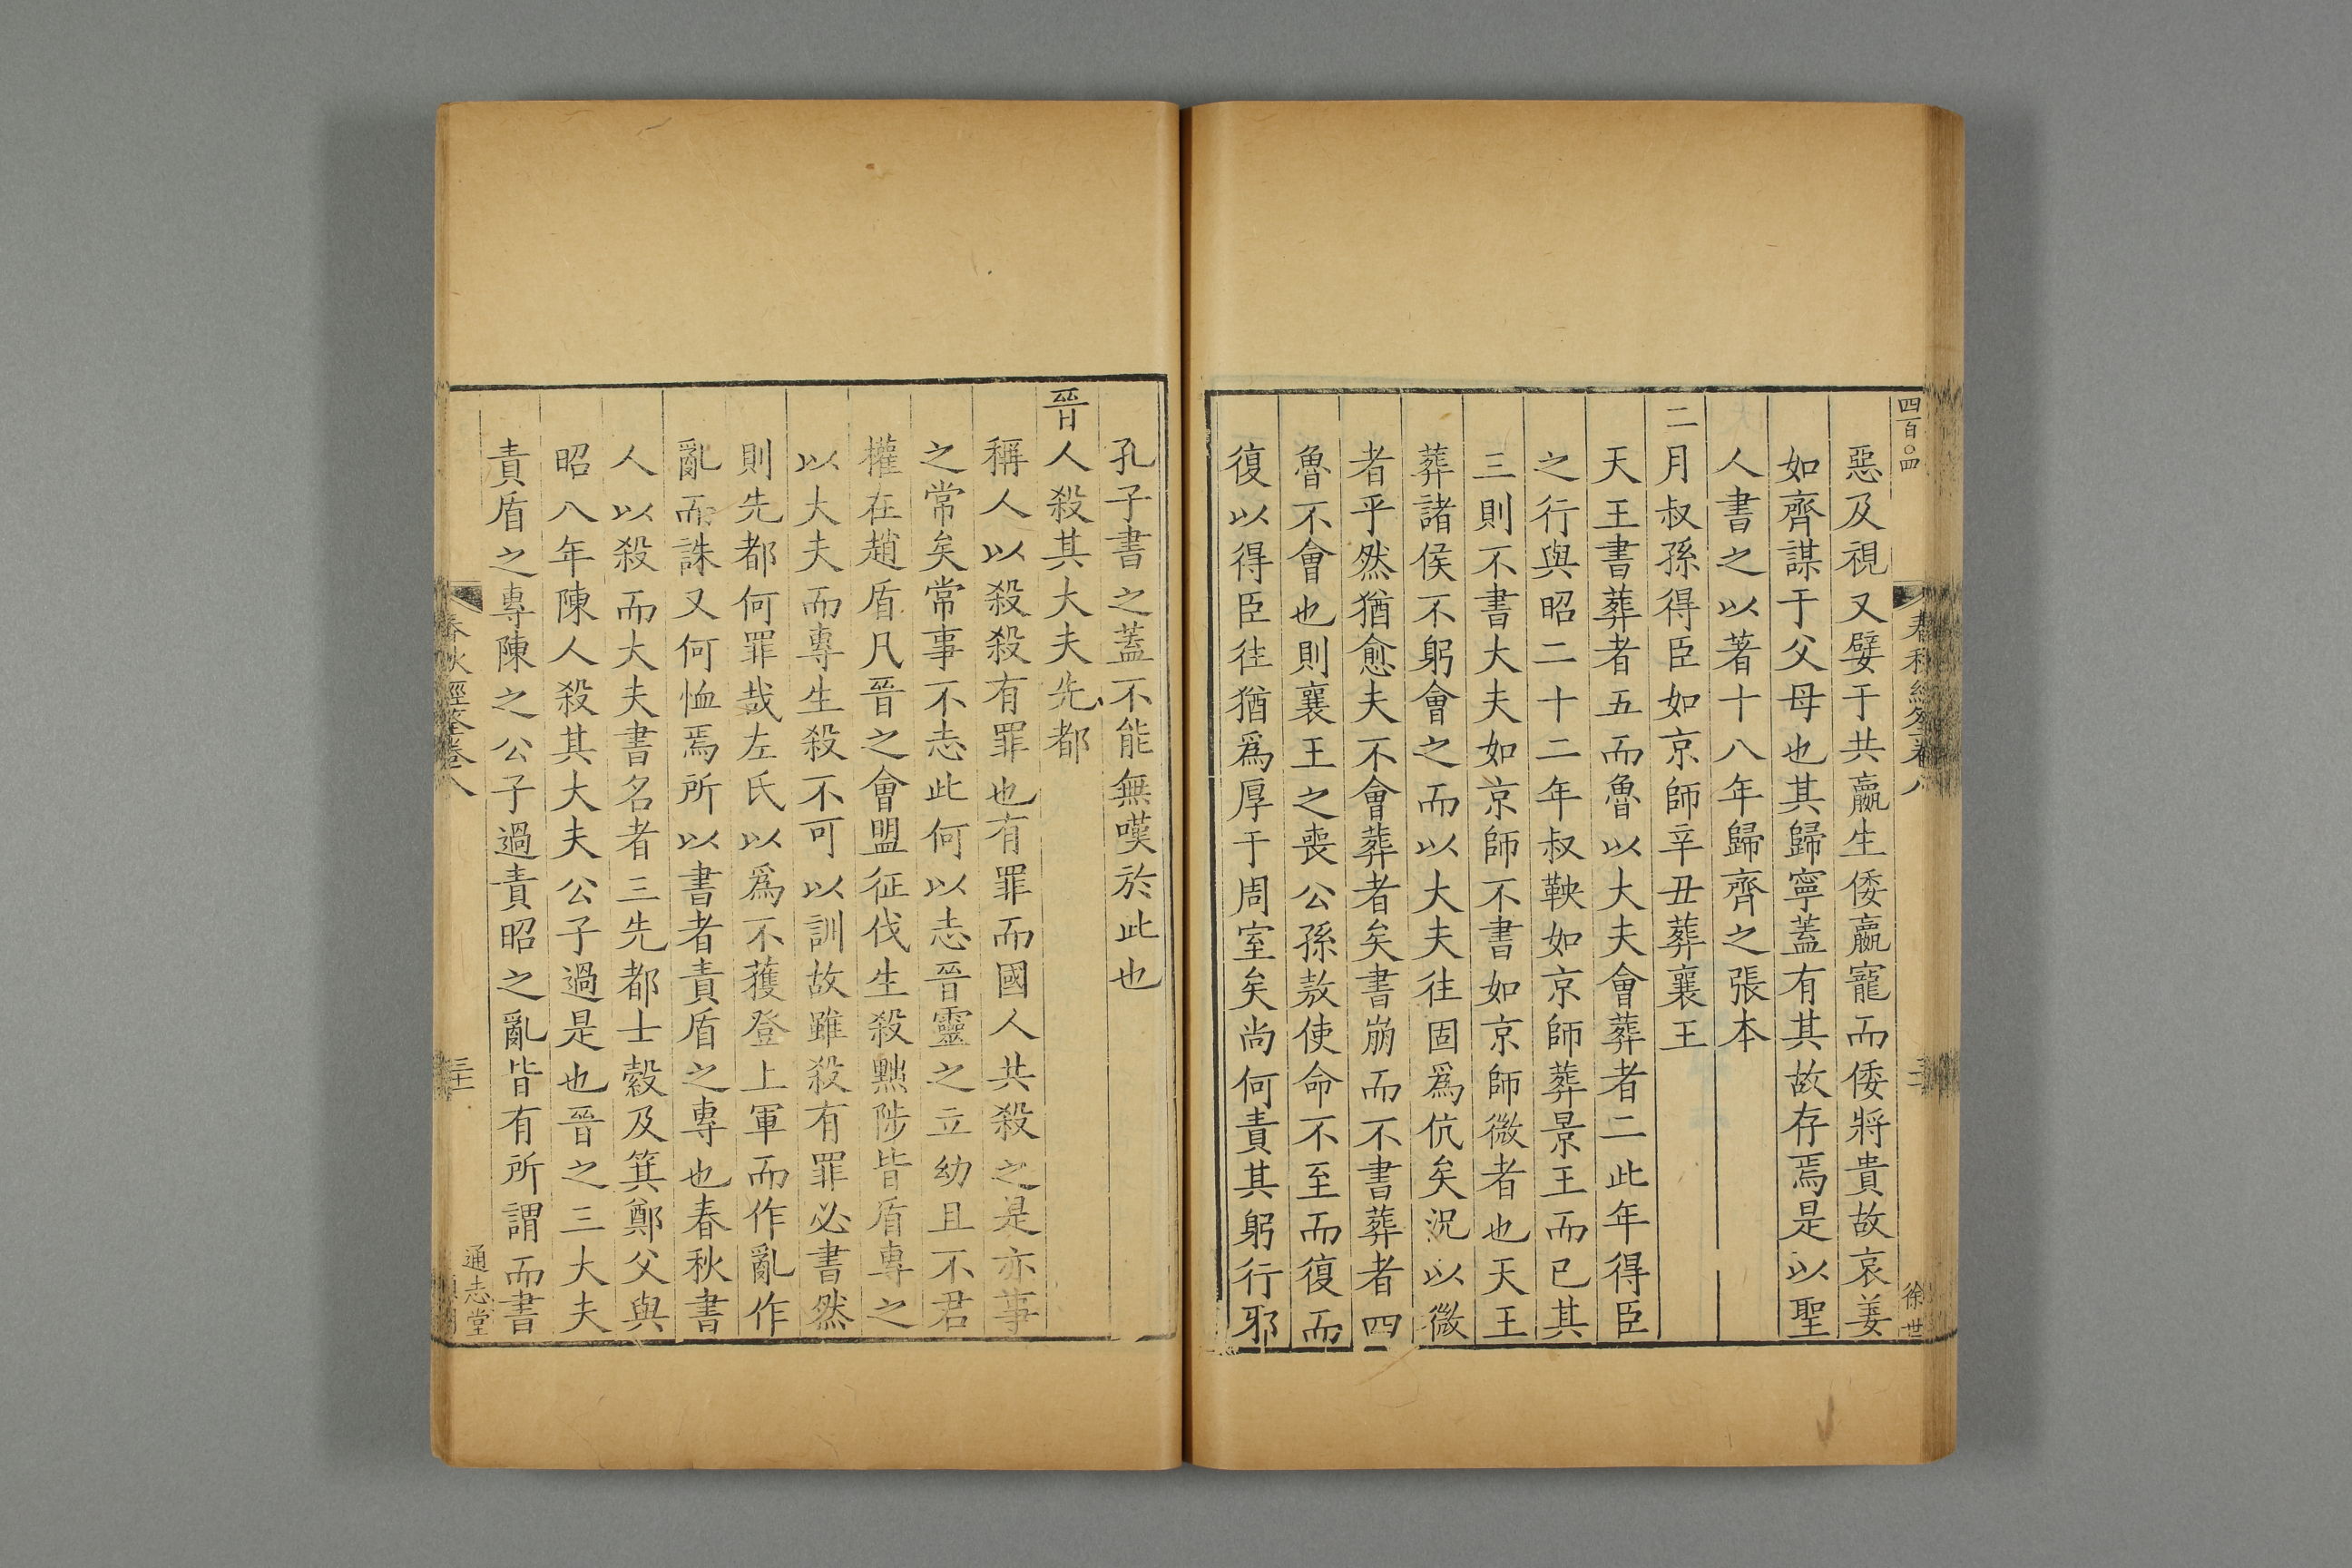 四百〇四
春秋經筌卷八
徐世
惡及視又嬖于共嬴生倭嬴寵而倭將貴故哀姜
如齊謀于父母也其歸寧蓋有其故存焉是以聖
人書之以著十八年歸齊之張本
二月叔孫得臣如京師辛丑葬襄王
天王書葬者五而魯以大夫會葬者二此年得臣
之行與昭二十二年叔鞅如京師葬景王而已其
三則不書大夫如京師不書如京師微者也天王
葬諸侯不躬會之而以大夫往固爲伉矣況以微
者乎然猶愈夫不會葬者矣書崩而不書葬者四
魯不會也則襄王之喪公孫敖使命不至而復而
復以得臣往猶爲厚于周室矣尚何責其躬行邪
孔子書之蓋不能無嘆於此也
晉人殺其大夫先都
稱人以殺殺有罪也有罪而國人共殺之是亦事
之常矣常事不志此何以志晉靈之立幼且不君
權在趙盾凡晉之會盟征伐生殺黜陟皆盾專之
以大夫而專生殺不可以訓故雖殺有罪必書然
則先都何罪哉左氏以爲不獲登上軍而作亂作
亂而誅又何恤焉所以書者責盾之專也春秋書
人以殺而大夫書名者三先都士縠及箕鄭父與
昭八年陳人殺其大夫公子過是也晉之三大夫
責盾之專陳之公子過責昭之亂皆有所謂而書
春秋經筌卷八
三十一
通志堂